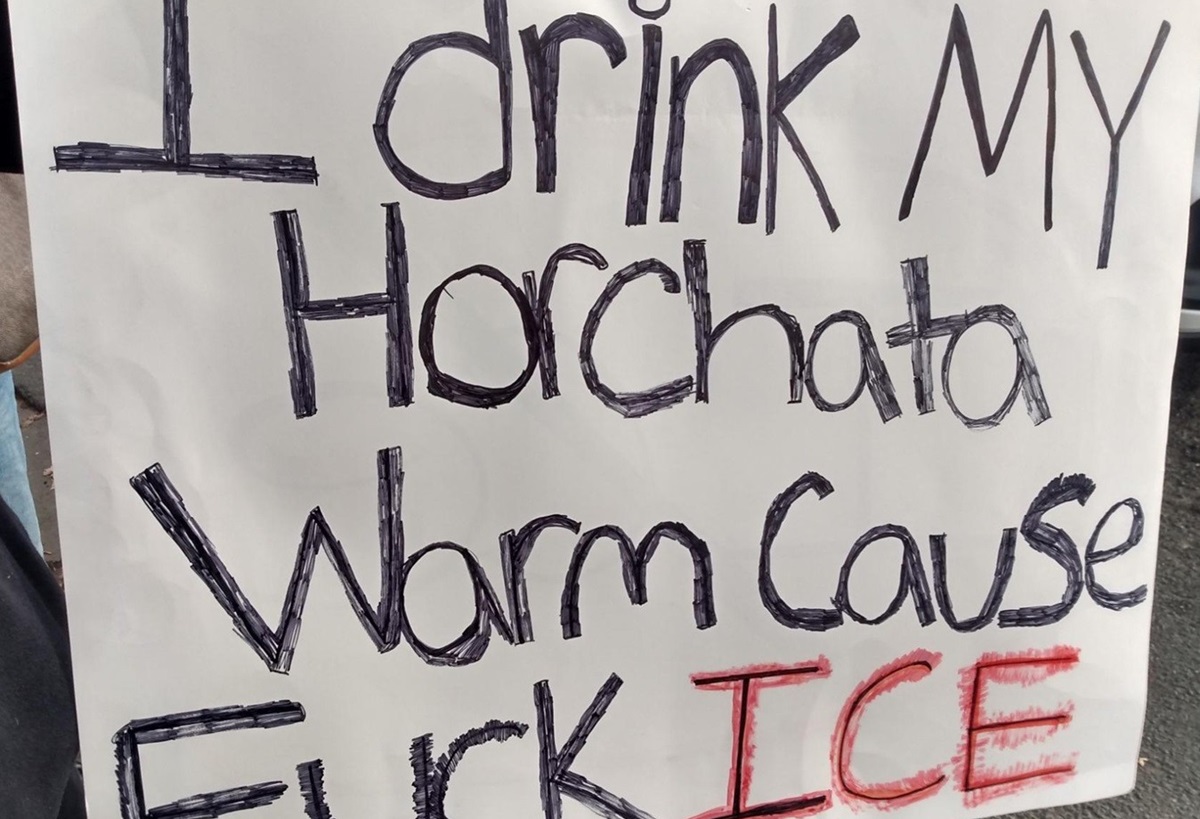 I drink MY
Horchata
Warm Cause
Fuck ICE